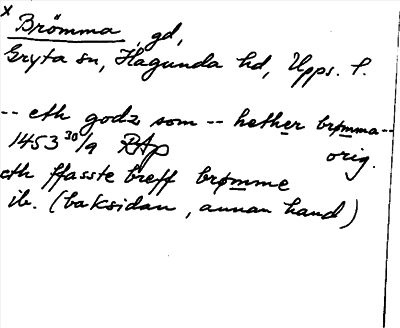 x
Brömma, gd,
Gryta sn, Hagunda hd, Upps. l.
-- eth godz som -- hether brømma --
1453 30/9 RAp orig.
eth ffasste breff brømme
ib. (baksidan, annan hand)